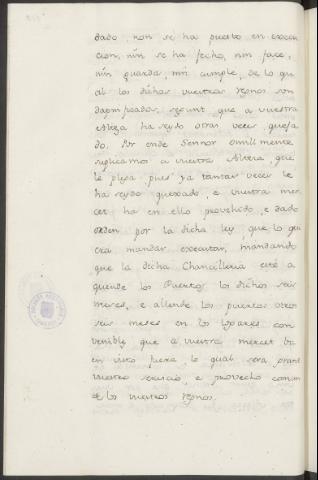 dado, non se ha puesto en execu
cion, nin se ha fecho, nin face,
nin guarda, nin cumple, de lo qu
al los dichos vuestros regnos son
dagnificados, segunt que a vuestra
Alteza ha seydo otras veces quexa
do. Por ende Sennor omillmente
suplicamos a vuestra Alteza, que
le plega, pues ya tantas veces le
ha seydo quexado, e vuestra mer
cet ha en ello provehido, e dado
orden por la dicha ley, que lo qui
era mandar executar, mandando
que la dicha Chancilleria esté a
quende los Puertos los dichos seis
meses, e allende los puertos otros
seis meses en los logares con
venibles que a vuestra mercet ba
en visto fuere, lo qual sera grant
vuestro servicio, e provecho comun
de los vuestros regnos.